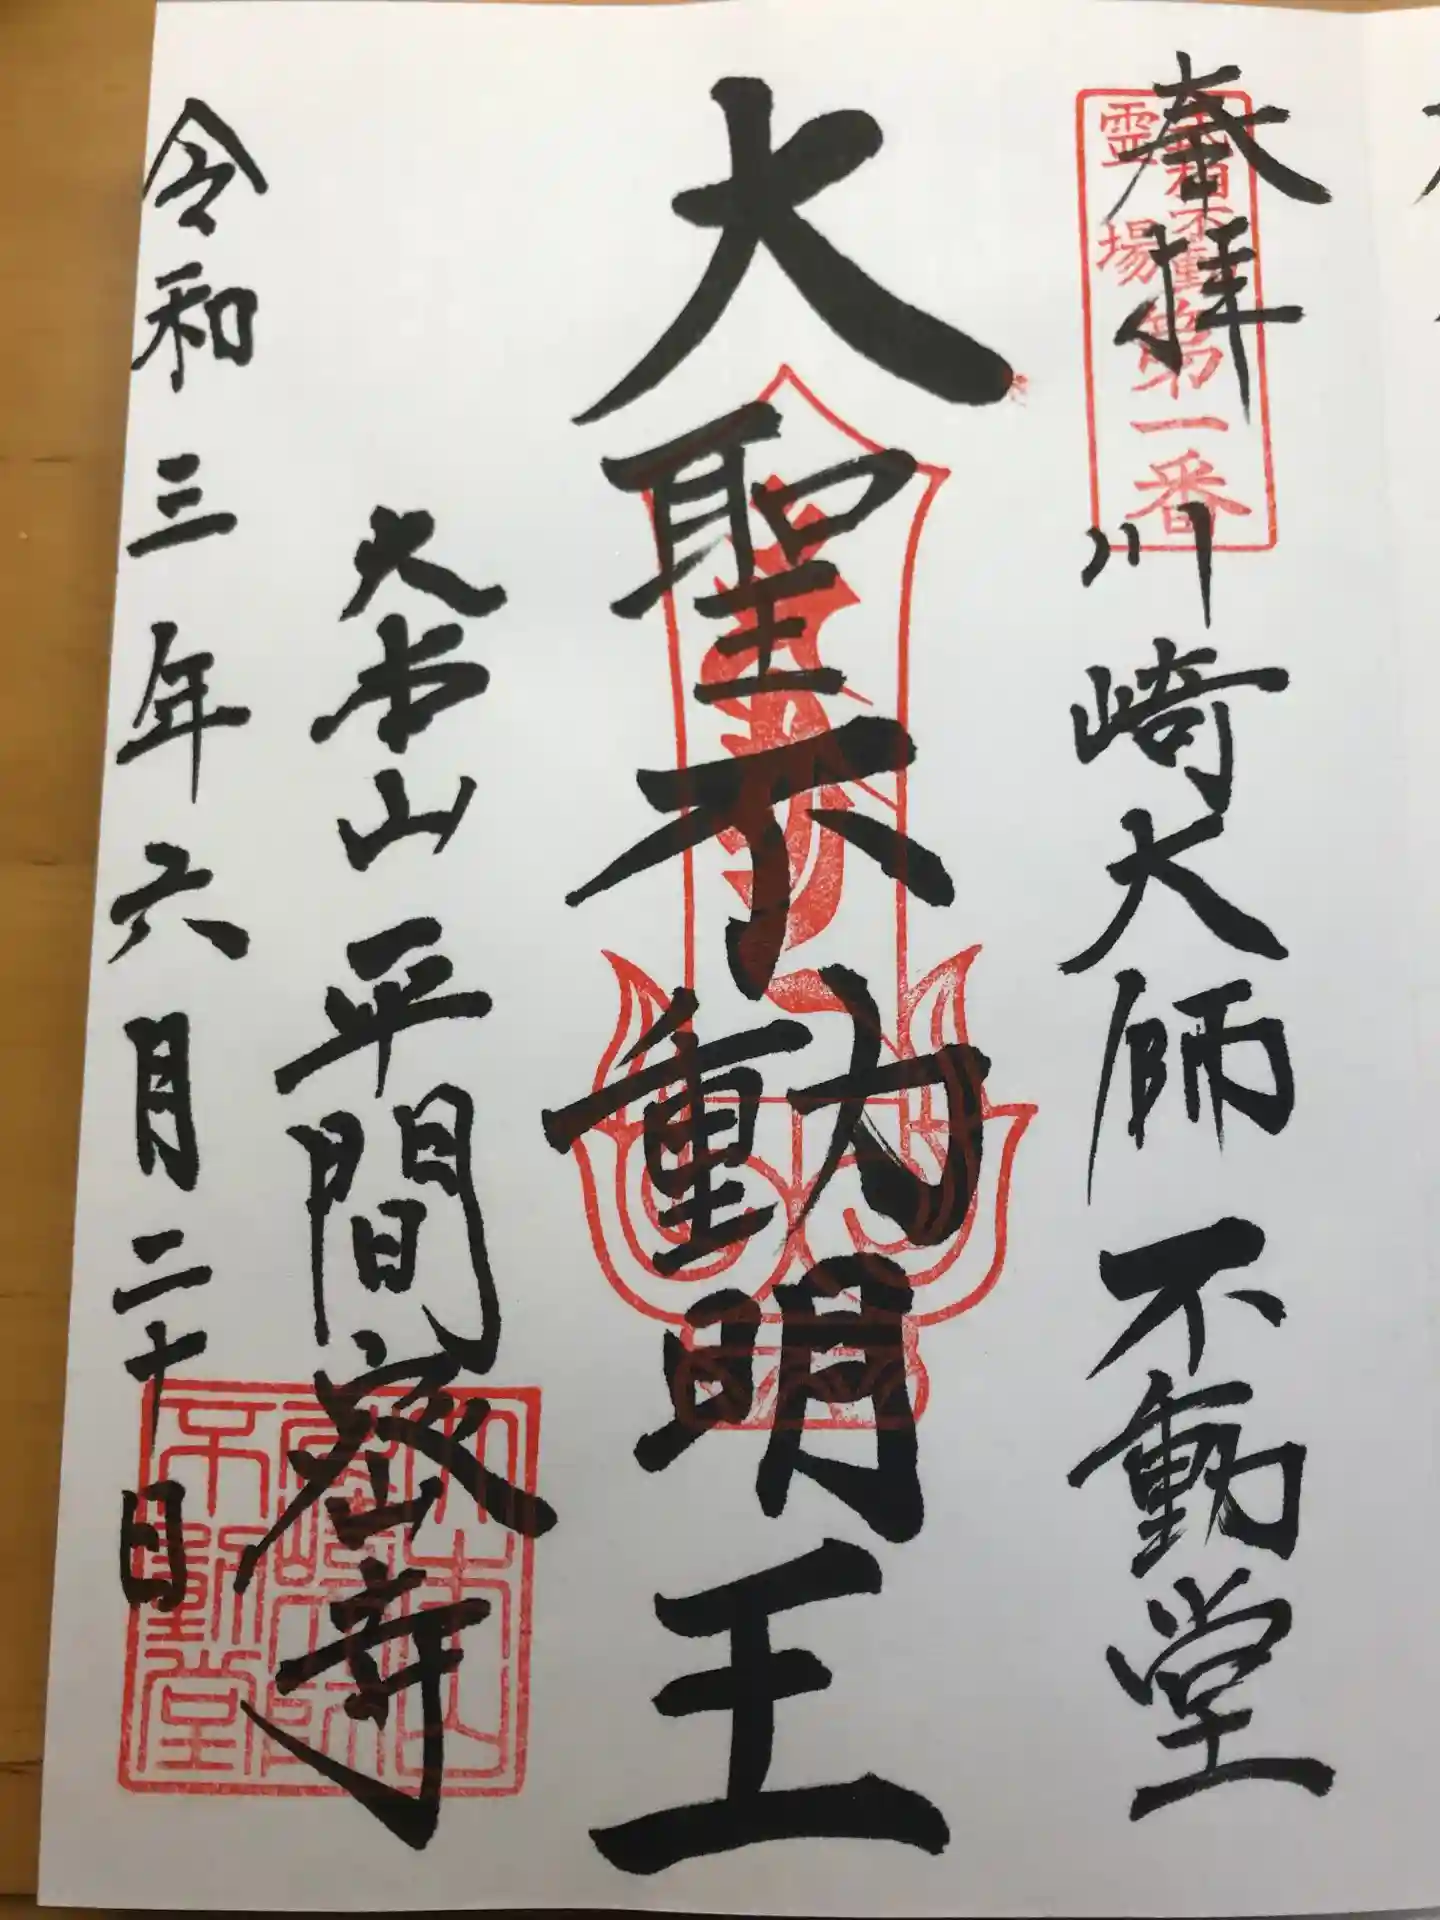 奉拝
川崎大師 不動堂
武相不動
霊場
第一番
大聖不動明王
大本山 平間寺
令和三年六月二十日
大本山
川崎大師
不動堂